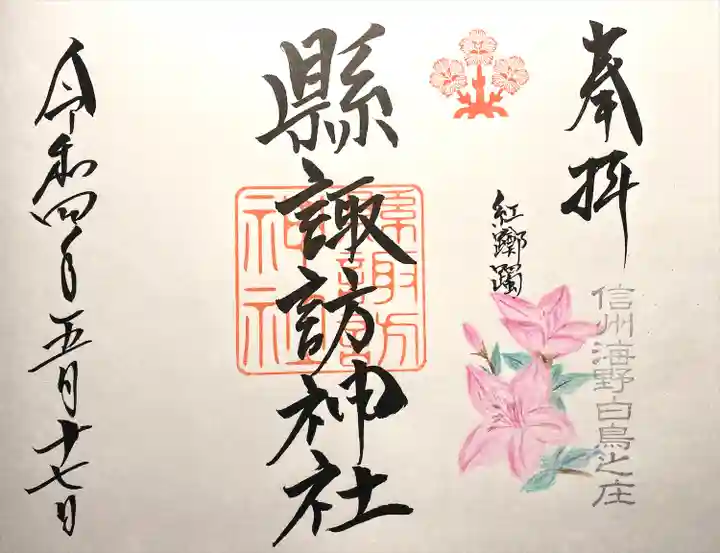 奉拝
信州海野白鳥之庄
紅躑躅
縣諏訪神社
縣諏訪神社
令和四年五月十七日